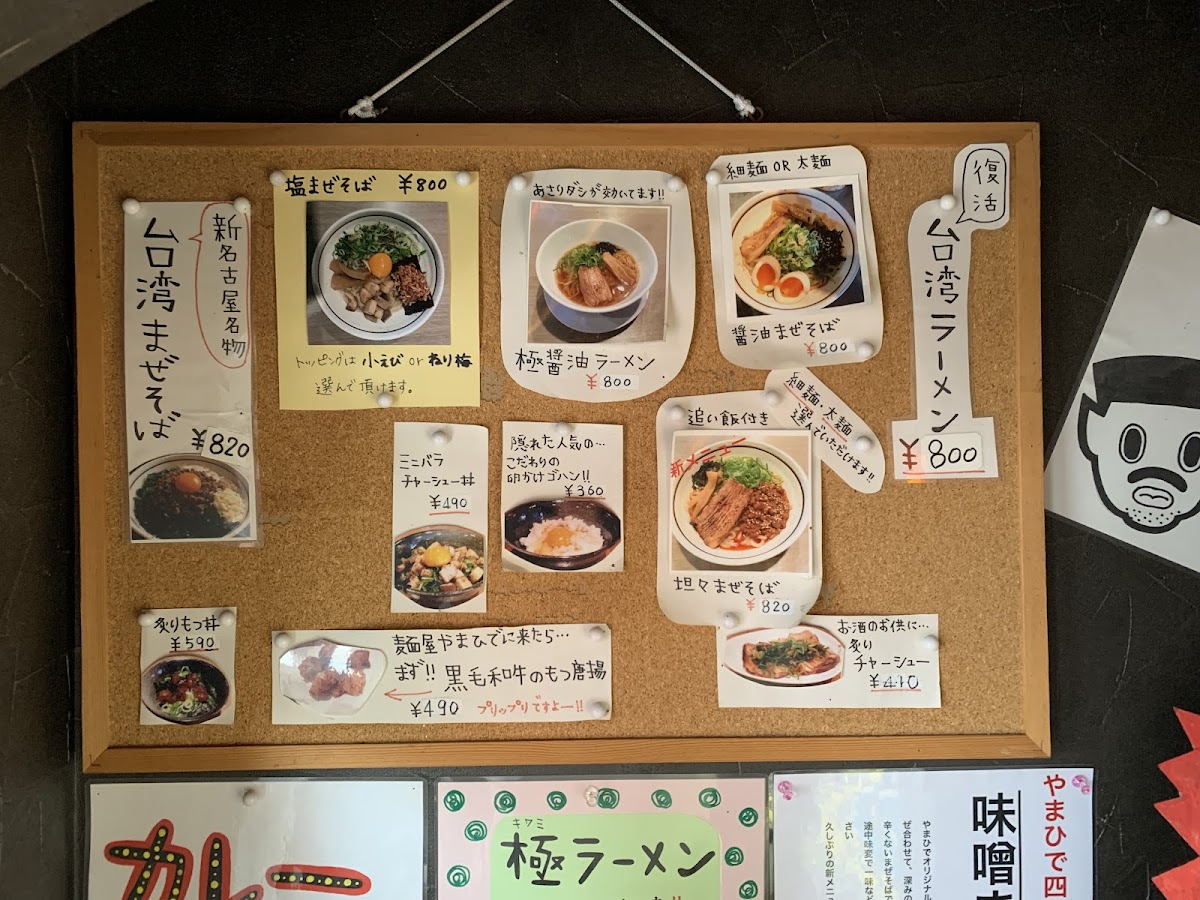 新名古屋名物
台湾まぜそば
¥820
塩まぜそば ¥800
トッピングは 小えび or ねり梅
選んで頂けます。
あさりダシが効いてます!!
極醤油ラーメン
¥800
細麺 OR 太麺
醤油まぜそば
¥800
復活
台湾ラーメン
¥800
ミニバラ
チャーシュー丼
¥490
隠れた人気の…
こだわりの
卵かけゴハン!!
¥360
追い飯付き
新メニュー
坦々まぜそば
¥820
細麺・太麺
選んでいただけます!!
炙りもつ丼
¥590
麺屋やまひでに来たら…
まず!! 黒毛和牛のもつ唐揚
¥490 プリップリですよー!!
お酒のお供に…
炙り
チャーシュー
¥410
カレー
キワミ
極ラーメン
やまひで四
味噌
やまひでオリジナル
ぜ合わせて、深みの
辛くないまぜそばで
途中味変で一味など
さい
久しぶりの新メニ